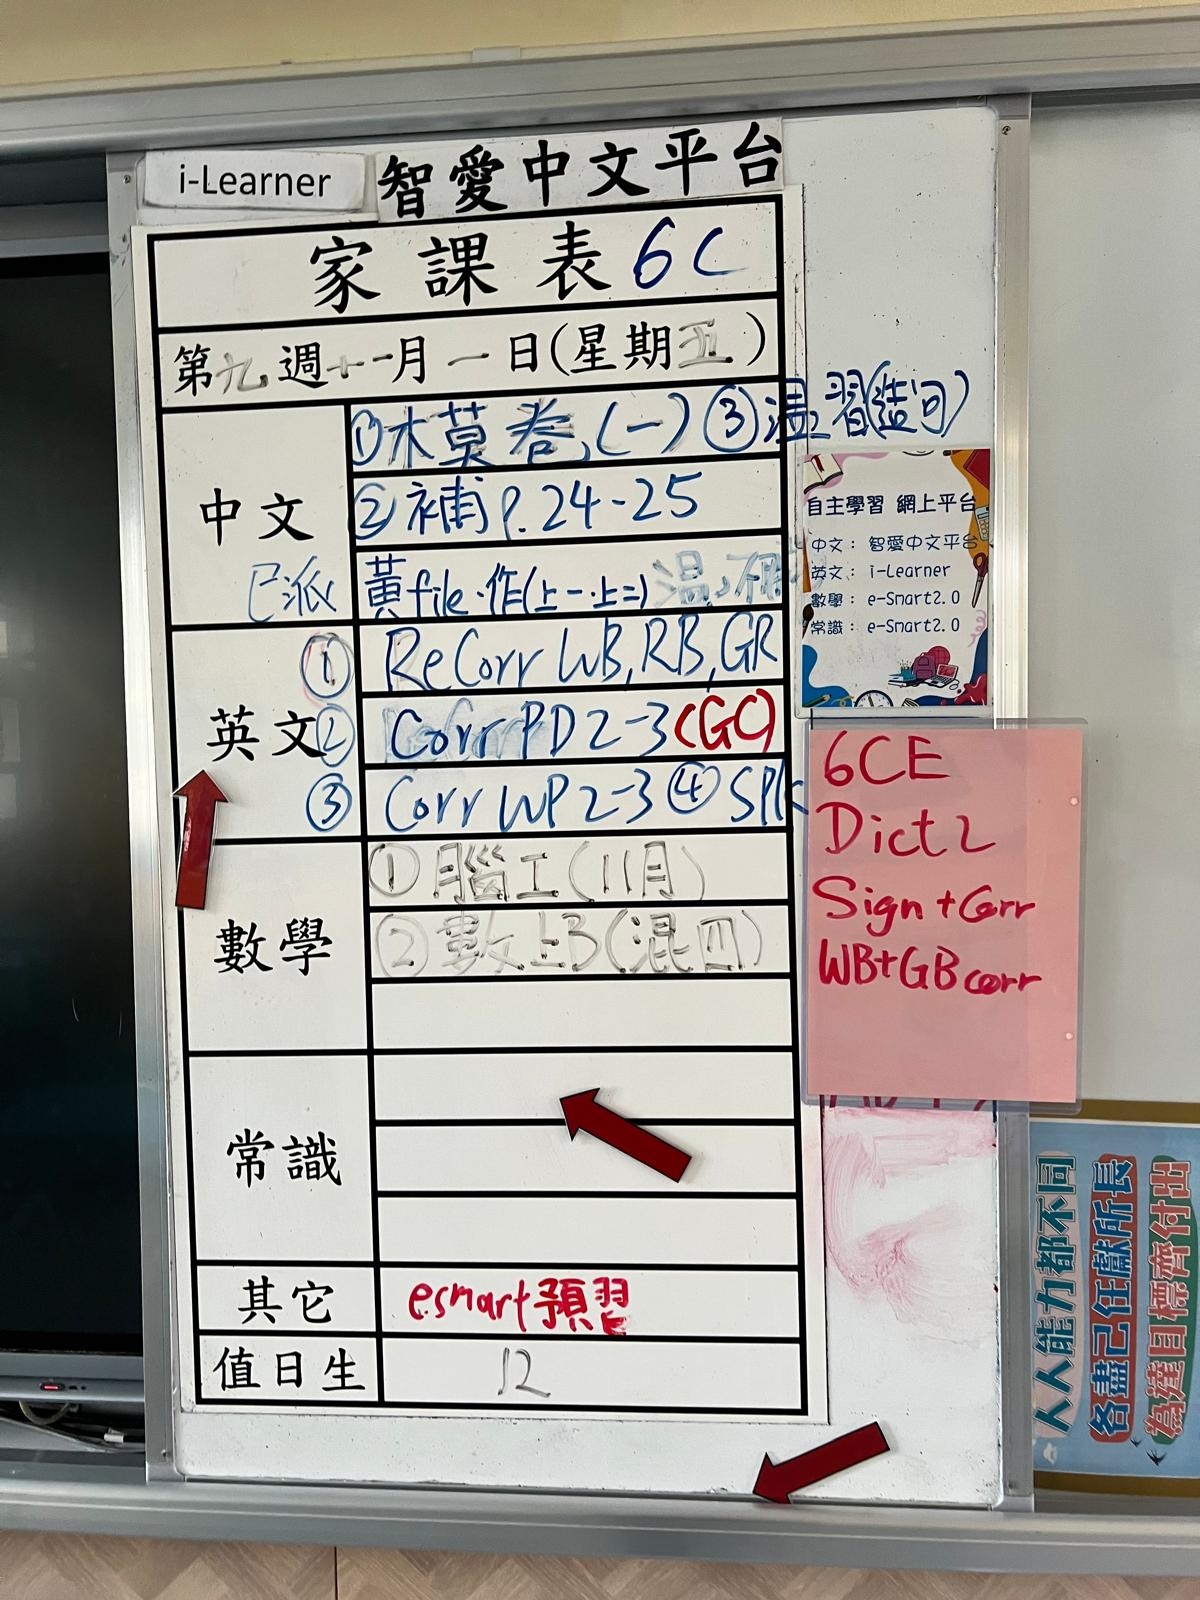 i-Learner 智愛中文平台
家課表 6C
第九週十一月一日(星期五)
中文
①木莫卷(一) ③温習(造句)
②補 P.24-25
已派
黃file.作(上一.上二) 温
英文
① ReCorr WB, RB, GR
② Corr PD 2-3 (GC)
③ Corr WP 2-3 ④ SPK
數學
① 腦工(11月)
② 數上B(混四)
常識
其它
esmart預習
值日生
12
自主學習 網上平台
中文： 智愛中文平台
英文： i-Learner
數學： e-Smart2.0
常識： e-Smart2.0
6CE
Dict 2
Sign + Corr
WB+GB corr
人人能力都不同
各盡己任獻所長
為達目標齊付出